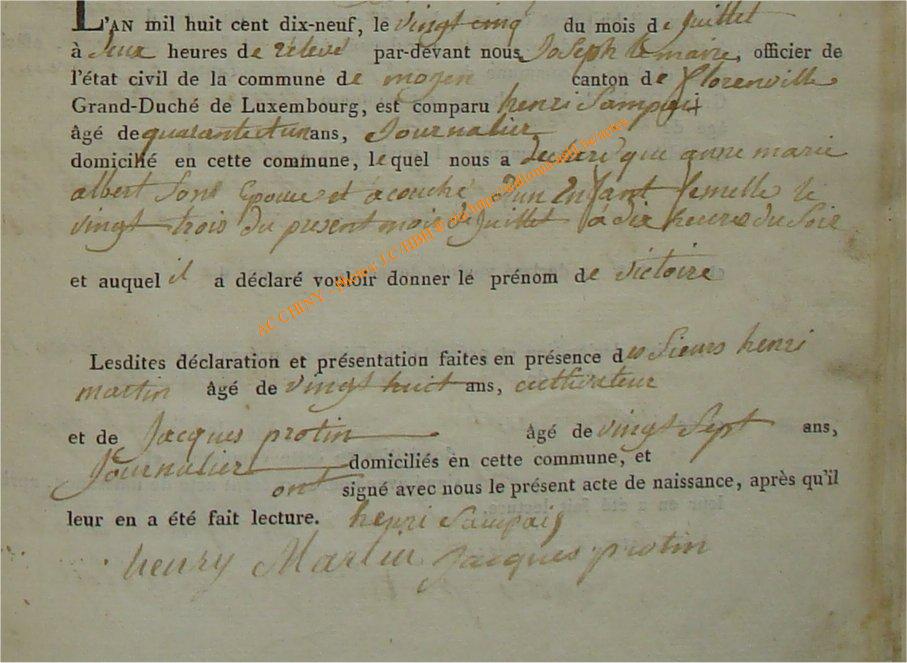 L'AN mil huit cent dix-neuf, le vingt cinq du mois de juillet
à deux heures de relevé par-devant nous Joseph lemaire, officier de
l'état civil de la commune de moyen canton de florenville
Grand-Duché de Luxembourg, est comparu henri Sampaix
âgé de quarante et un ans, Journalier
domicilié en cette commune, lequel nous a declaré que anne marie
albert Son Epouse et acouché d'un Enfant femelle le
vingt trois du present mois de juillet a dix heures du Soir
et auquel il a déclaré vouloir donner le prénom de victoire
Lesdites déclaration et présentation faites en présence des Sieurs henri
martin âgé de vingt huit ans, cultivateur
et de Jacques protin âgé de vingt Sept ans,
Journalier domiciliés en cette commune, et
ont signé avec nous le présent acte de naissance, après qu'il
leur en a été fait lecture. henri Sampaix
henry Martin Jacques protin
AC CHINY - photos J.C HDH ©